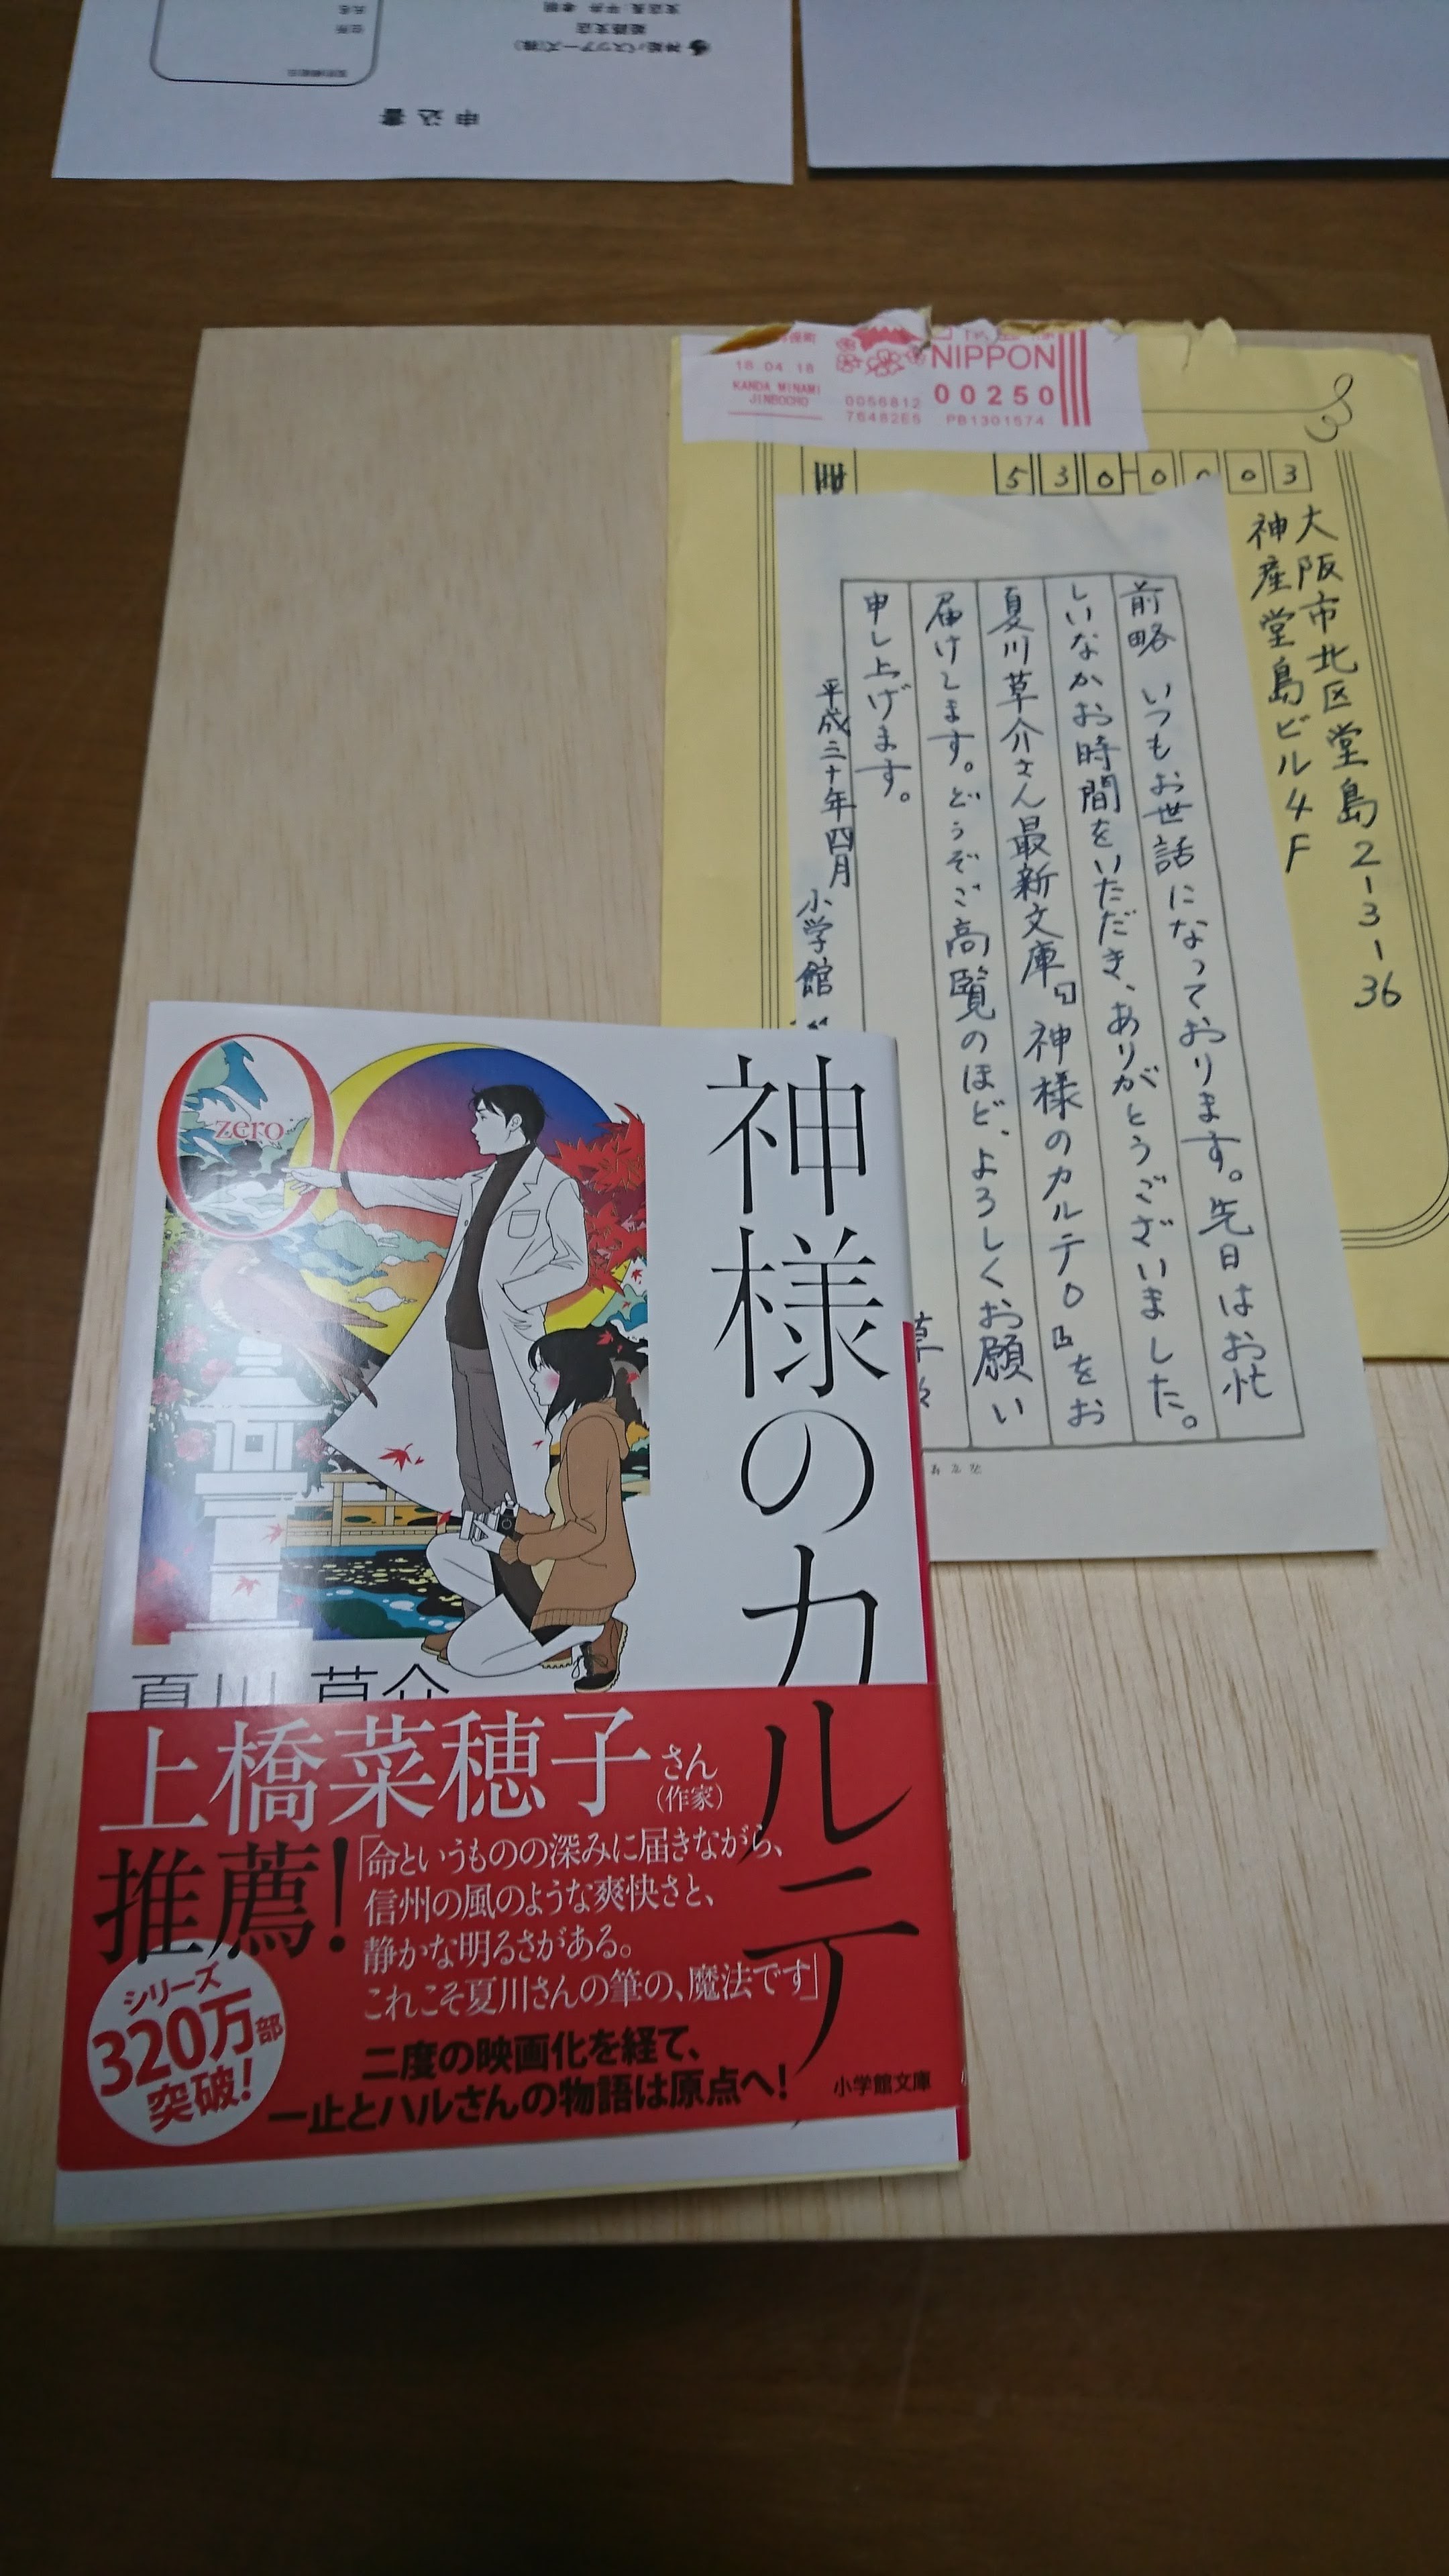 申込書
神姫バスツアーズ(株)
姫路支店
18 04 18
KANDA MINAMI
JINBOCHO
NIPPON
00250
0056812
764B2E5 PB1301574
530-0003
大阪市北区堂島2-3-36
神産堂島ビル4F
前略 いつもお世話になっております。先日はお忙
しいなかお時間をいただき、ありがとうございました。
夏川草介さん最新文庫『神様のカルテ0』をお
届けします。どうぞご高覧のほど、よろしくお願い
申し上げます。
草々
平成三十年四月
小学館
神様のカルテ
0
zero
夏川草介
上橋菜穂子さん
(作家)
推薦!
「命というものの深みに届きながら、
信州の風のような爽快さと、
静かな明るさがある。
これこそ夏川さんの筆の、魔法です」
シリーズ
320万部
突破!
二度の映画化を経て、
一止とハルさんの物語は原点へ!
小学館文庫